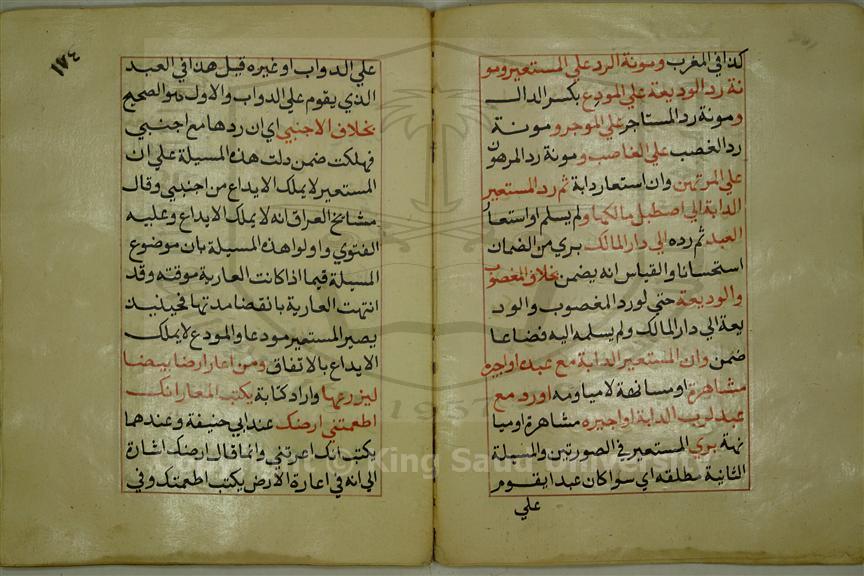 كذا في المغرب ومونة الرد علي المستعير ومو
نة رد الوديعة علي المودع بكسر الدال
ومونة رد المستاجر علي الموجر ومونة
رد الغصب علي الغاصب ومونة رد المرهون
علي المرتهن وان استعار دابة ثم رد المستعير
الدابة الي اصطبل مالكها ولم يسلم او استعا
العبد ثم رده الي دار المالك بري من الضمان
استحسانا والقياس انه يضمن بخلاف المغصوب
والوديعة حتي لو رد المغصوب والود
يعة الي دار المالك ولم يسلمه اليه فضاعا
ضمن وان المستعير الدابة مع عبده او اجيره
مشاهرة او مسانهة لا مياومه او رد مع
عبد لرب الدابة او اجيره مشاهرة او ميا
نهة بري المستعير في الصورتين والمسيلة
الثانية مطلقه اي سوا كان عبدا يقوم
علي
١٧٤
علي الدواب او غيره قيل هذا في العبد
الذي يقوم علي الدواب والاول هو الصحيح
بخلاف الاجنبي اي ان ردها مع اجنبي
فهلكت ضمن دلت هذه المسيلة علي ان
المستعير لا يملك الايداع من اجنبي وقال
مشايخ العراق انه لا يملك الايداع وعليه
الفتوي واولوا هذه المسيلة بان موضوع
المسيلة فيما اذا كانت العارية موقتة وقد
انتهت العارية بانقضا مدتها فحينيذ
يصير المستعير مودعا والمودع لا يملك
الايداع بالاتفاق ومن اعار ارضا بيضا
ليزرعها واراد كتابة يكتب المعار انك
اطعمتني ارضك عند ابي حنيفة وعندهما
يكتب انك اعرتني وانما قال ارضك اشارة
الي انه في اعارة الارض يكتب اطعمتك وفي
Copyright © King Saud University
1957